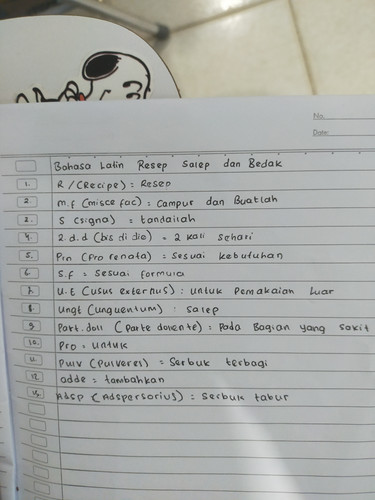 No.
Date:
Bahasa Latin Resep Salep dan Bedak
1. R/(Recipe) = Resep
2. m.f (misce fac) = Campur dan Buatlah
3. S (signa) = tandailah
4. 2.d.d (bis di die) = 2 kali sehari
5. Prn (Pro renata) = Sesuai kebutuhan
6. S.f = Sesuai formula
7. U.E (Usus externus) : Untuk Pemakaian Luar
8. Ungt (unguentum) : salep
9. Part. doll (Parte dolente) : Pada Bagian yang sakit
10. Pro = Untuk
11. Pulv (Pulveres) = Serbuk terbagi
12. adde = tambahkan
13. Adsp (Adspersorius) = Serbuk tabur